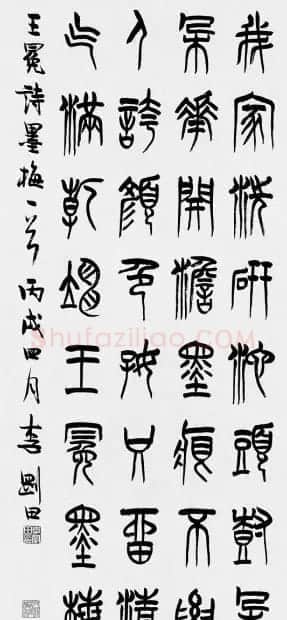 我家洗研池頭尌朵
朵華開澹墨痕不要
人誇顏色好只留清
气滿乾坤王冕墨梅
王冕詩墨梅一首 丙戌四月 李剛田
Shufaziliao.COM